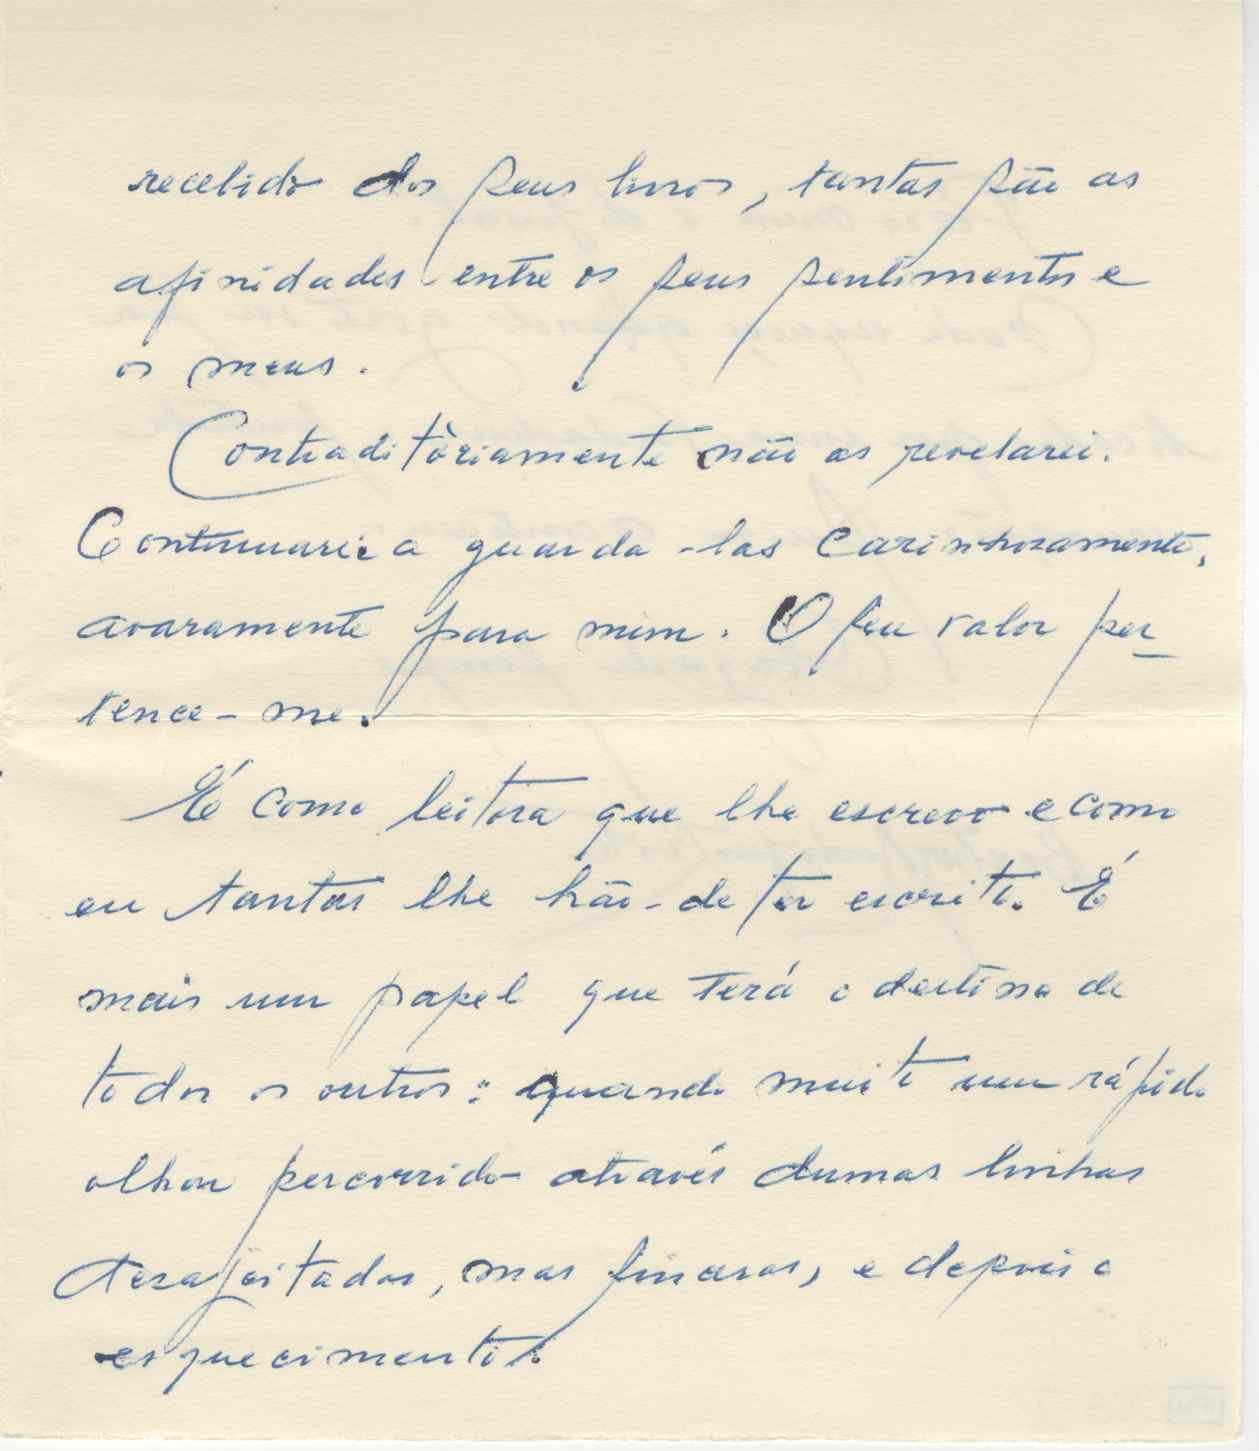 recebido dos seus livros, tantas são as
afinidades entre os seus sentimentos e
os meus.
Contraditòriamente não as revelarei.
Continuarei a guarda-las carinhosamente,
avaramente para mim. O seu valor per-
tence-me.
É como leitora que lhe escrevo e como
eu tantas lhe hão-de ter escrito. É
mais um papel que terá o destino de
todos os outros: quando muito um rápido
olhar percorrido através dumas linhas
desajeitadas, mas sinceras, e depois o
esquecimento.